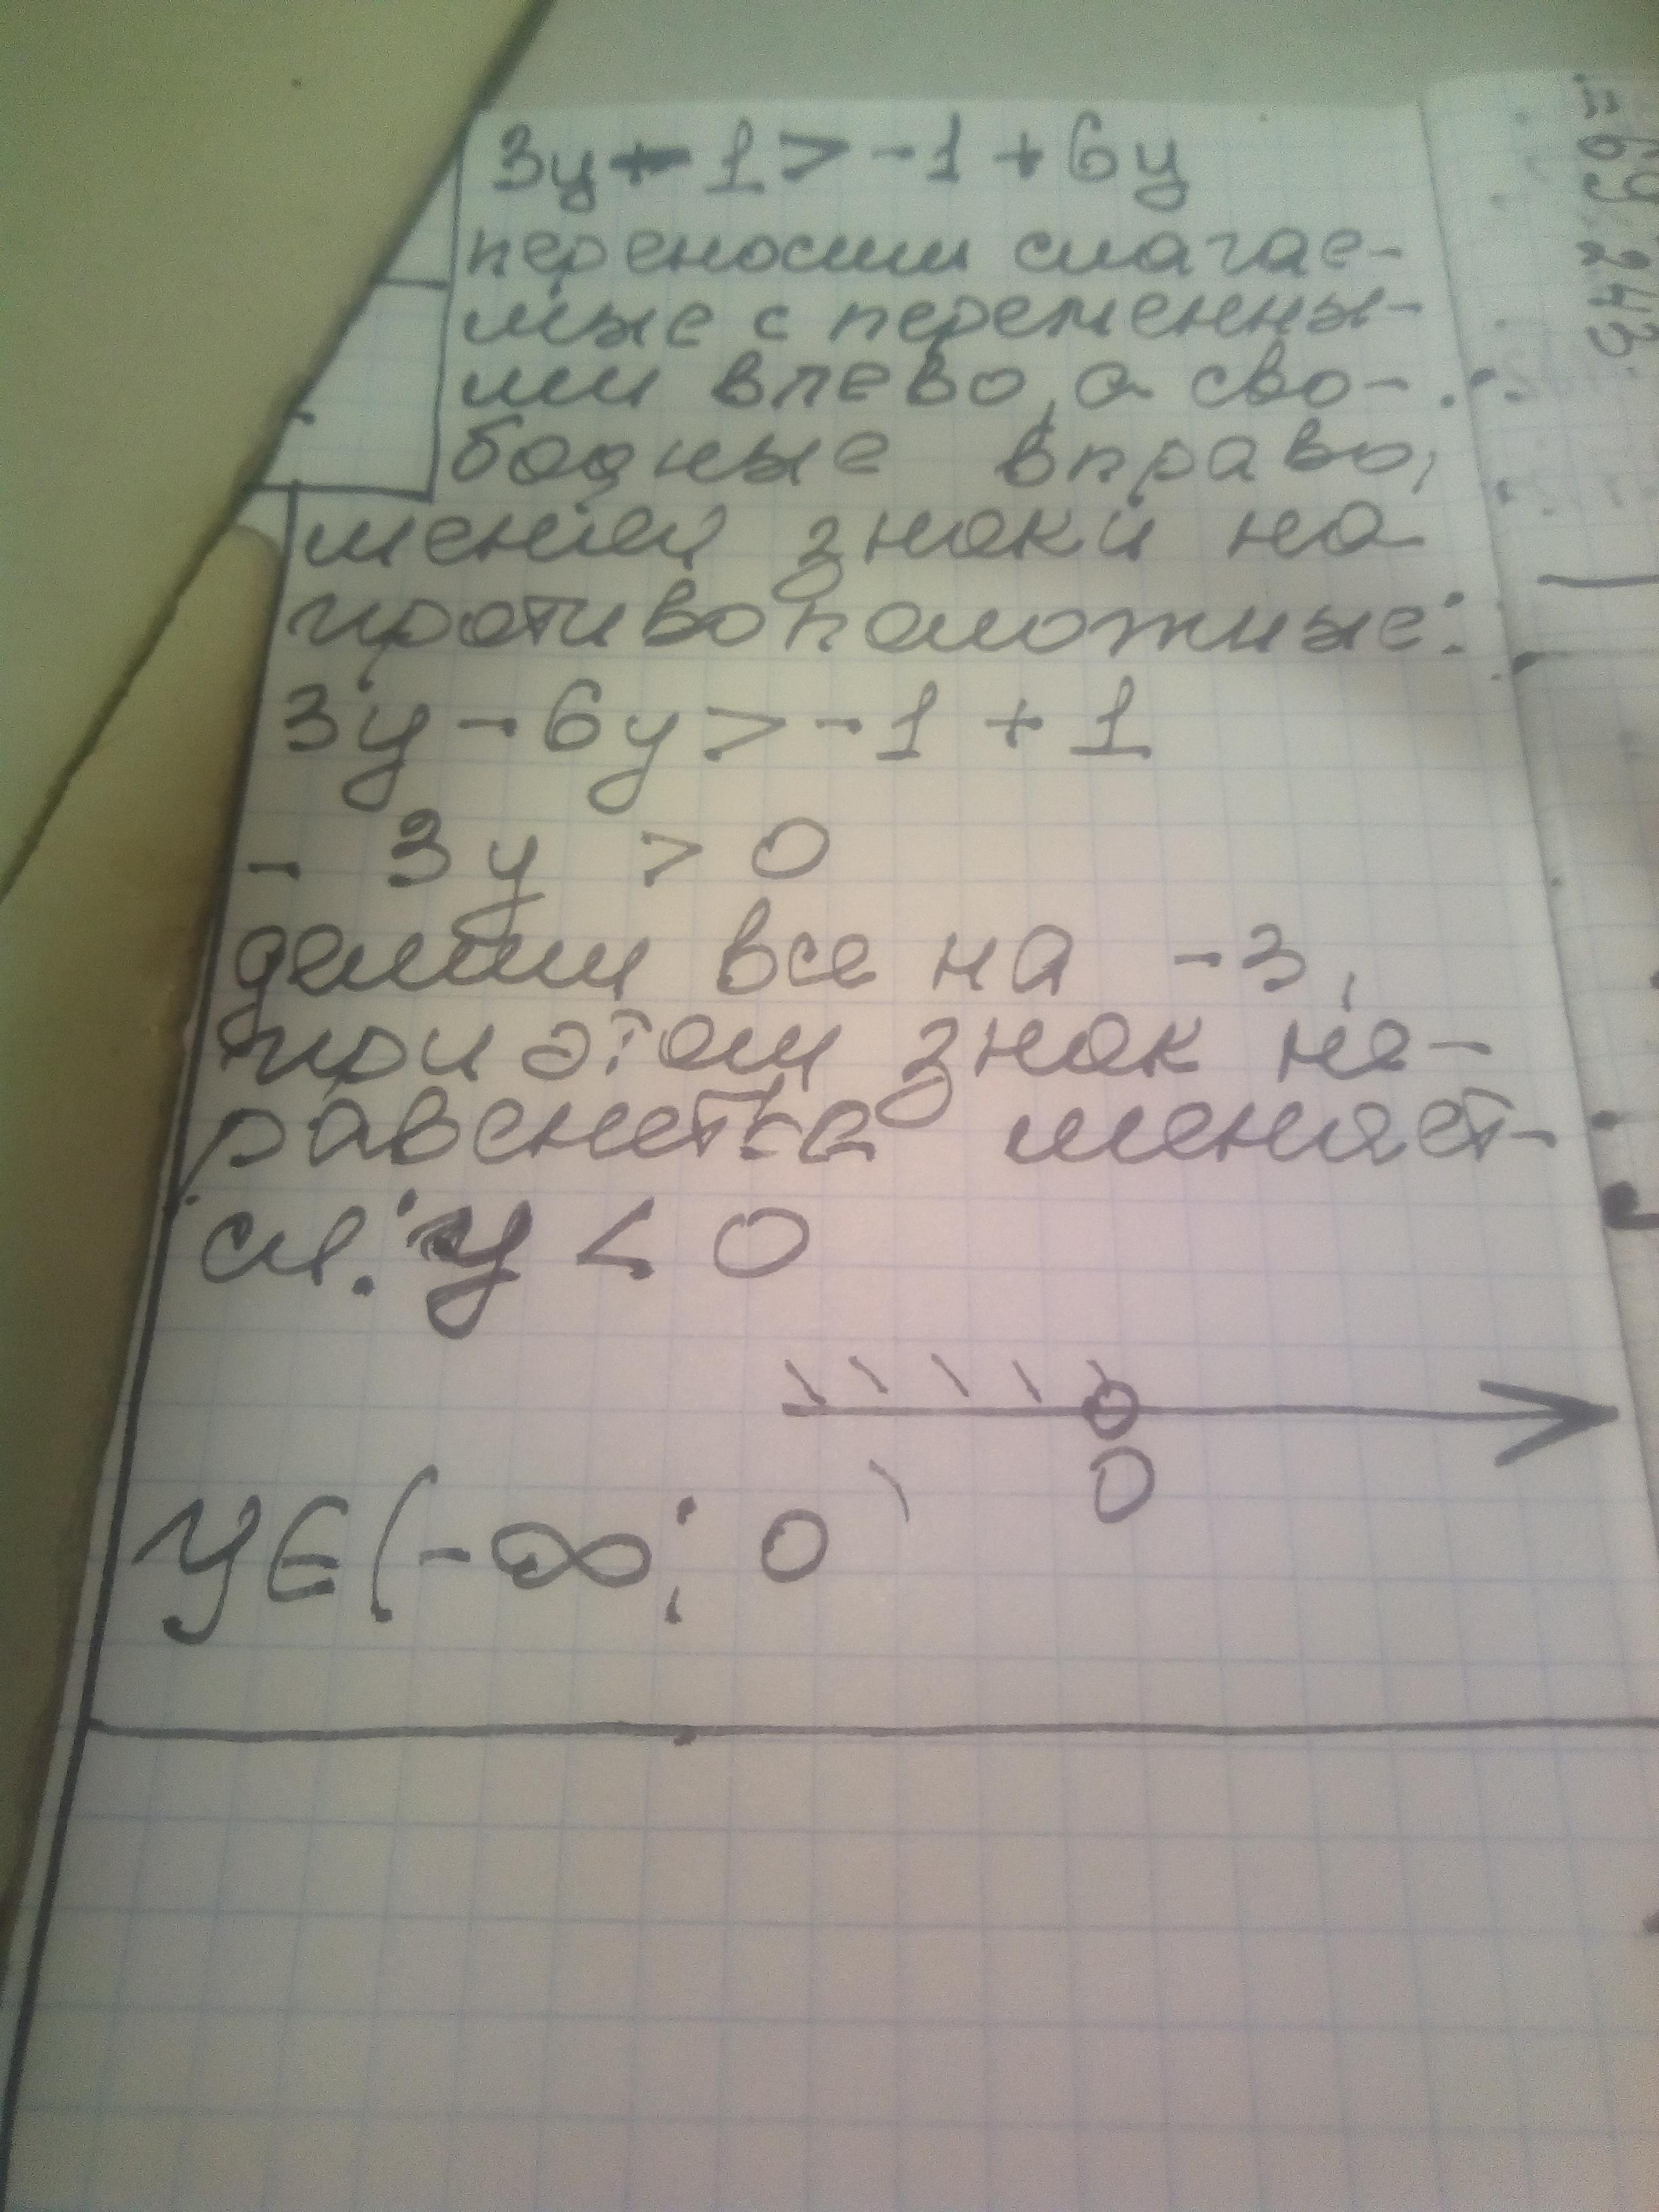 3y - 1 > -1 + 6y
переносим слагае-
мые с переменны-
ми влево, а сво-
бодные вправо,
меняя знаки на
противоположные:
3y - 6y > -1 + 1
- 3y > 0
делим все на -3,
при этом знак не-
равенства меняет-
ся: y < 0
0
y∈(-∞; 0)
243